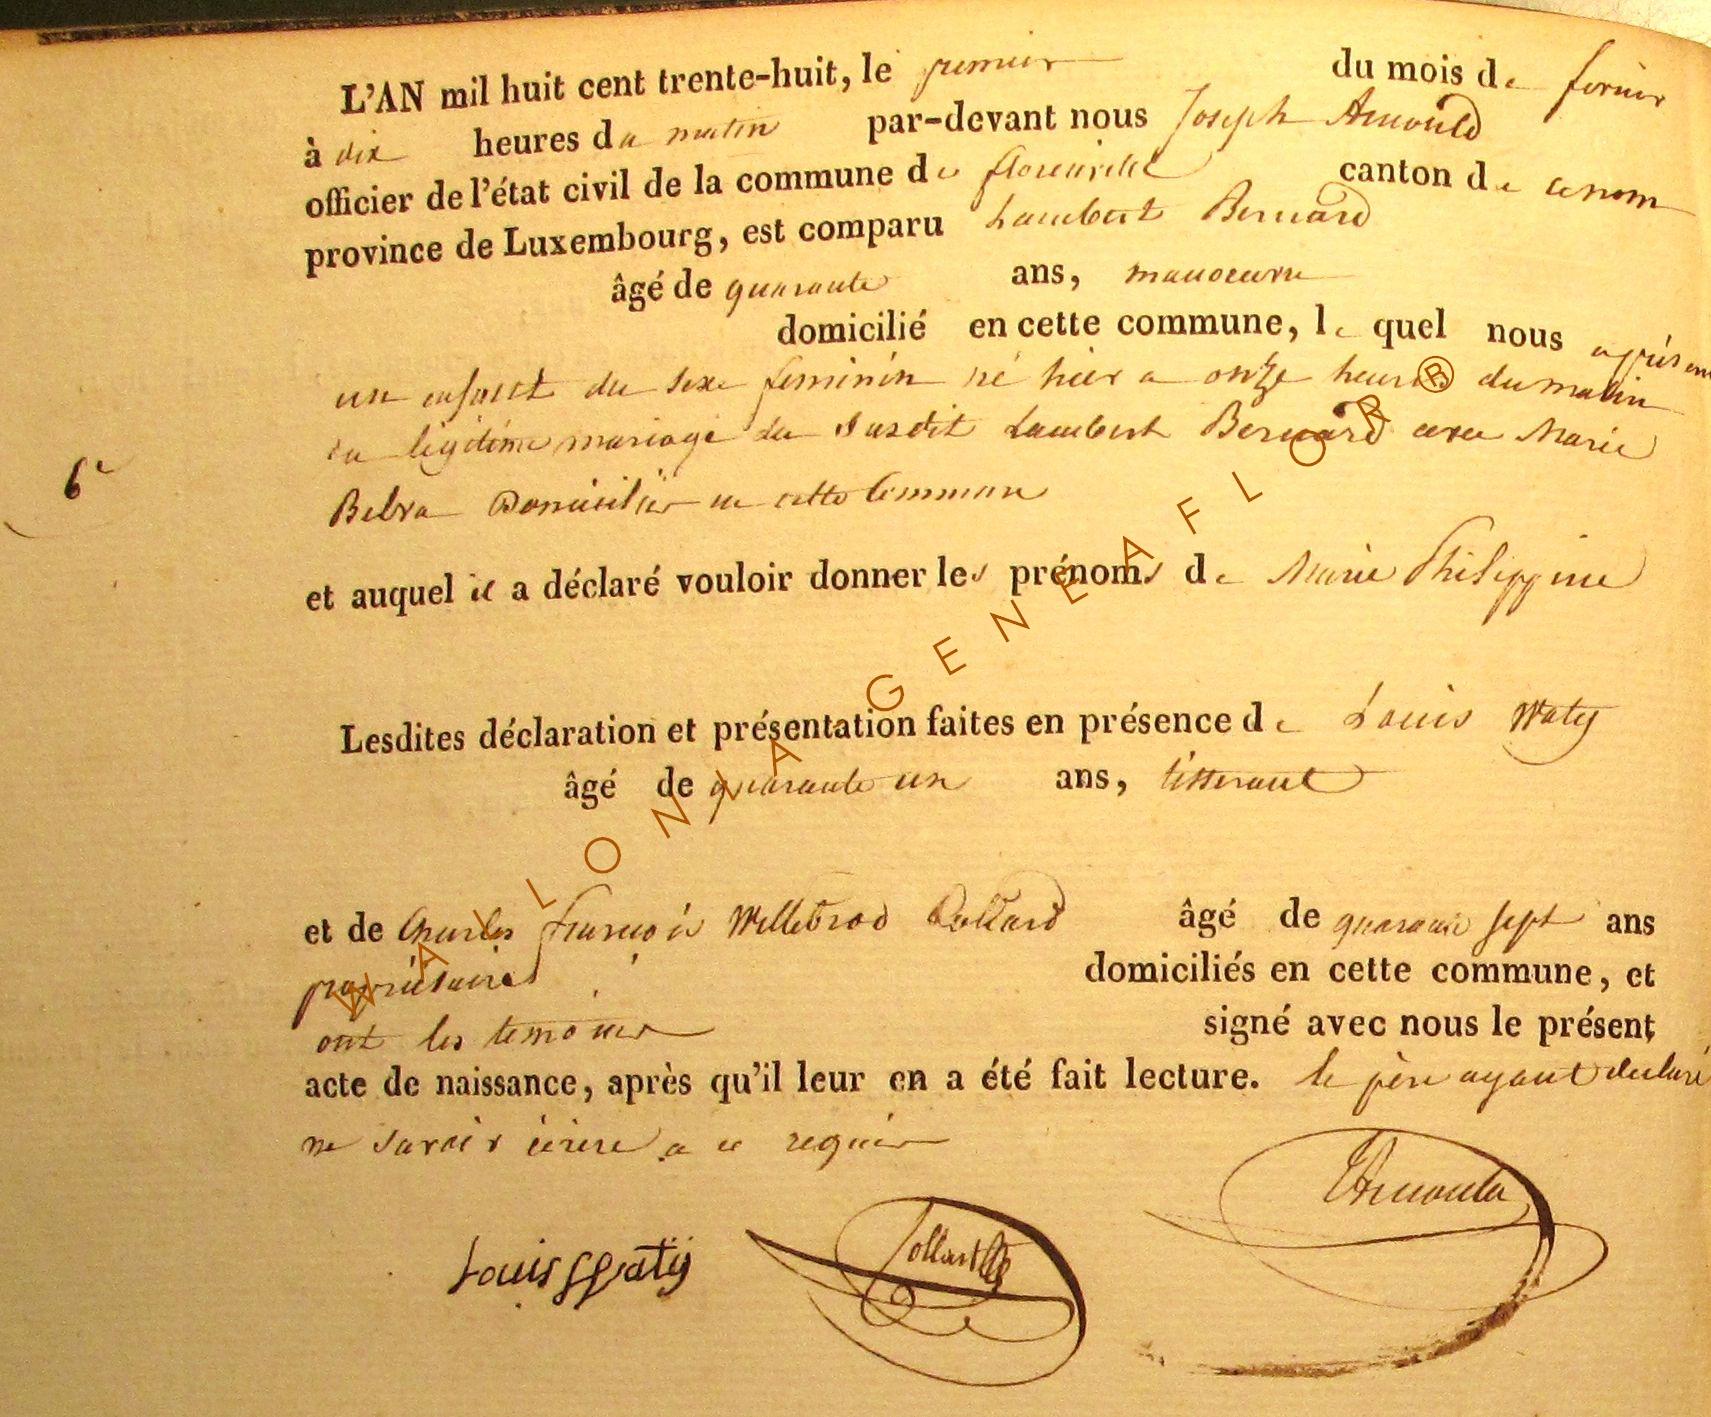 L'AN mil huit cent trente-huit, le premier du mois de fevrier
à dix heures du matin par-devant nous Joseph Arnould
officier de l'état civil de la commune de florenville canton de ce nom
province de Luxembourg, est comparu Lambert Bernard
âgé de quarante ans, manoeuvre
domicilié en cette commune, le quel nous a présenté
un enfant du sexe feminin né hier a onze heures du matin
du légitime mariage du susdit Lambert Bernard avec Marie
6e
Belva Domiciliés en cette Commune
et auquel il a déclaré vouloir donner les prénoms de Marie Philippine
Lesdites déclaration et présentation faites en présence de Louis Waty
âgé de quarante un ans, tisserant
et de Charles François Willebrod Collard âgé de quarante sept ans
propriétaire domiciliés en cette commune, et
ont les temoins signé avec nous le présent
acte de naissance, après qu'il leur en a été fait lecture. le père ayant declaré
ne savoir écrire a ce requis
Louis Watÿ Collard JArnould
WALLONIA GENEAFLOR ®